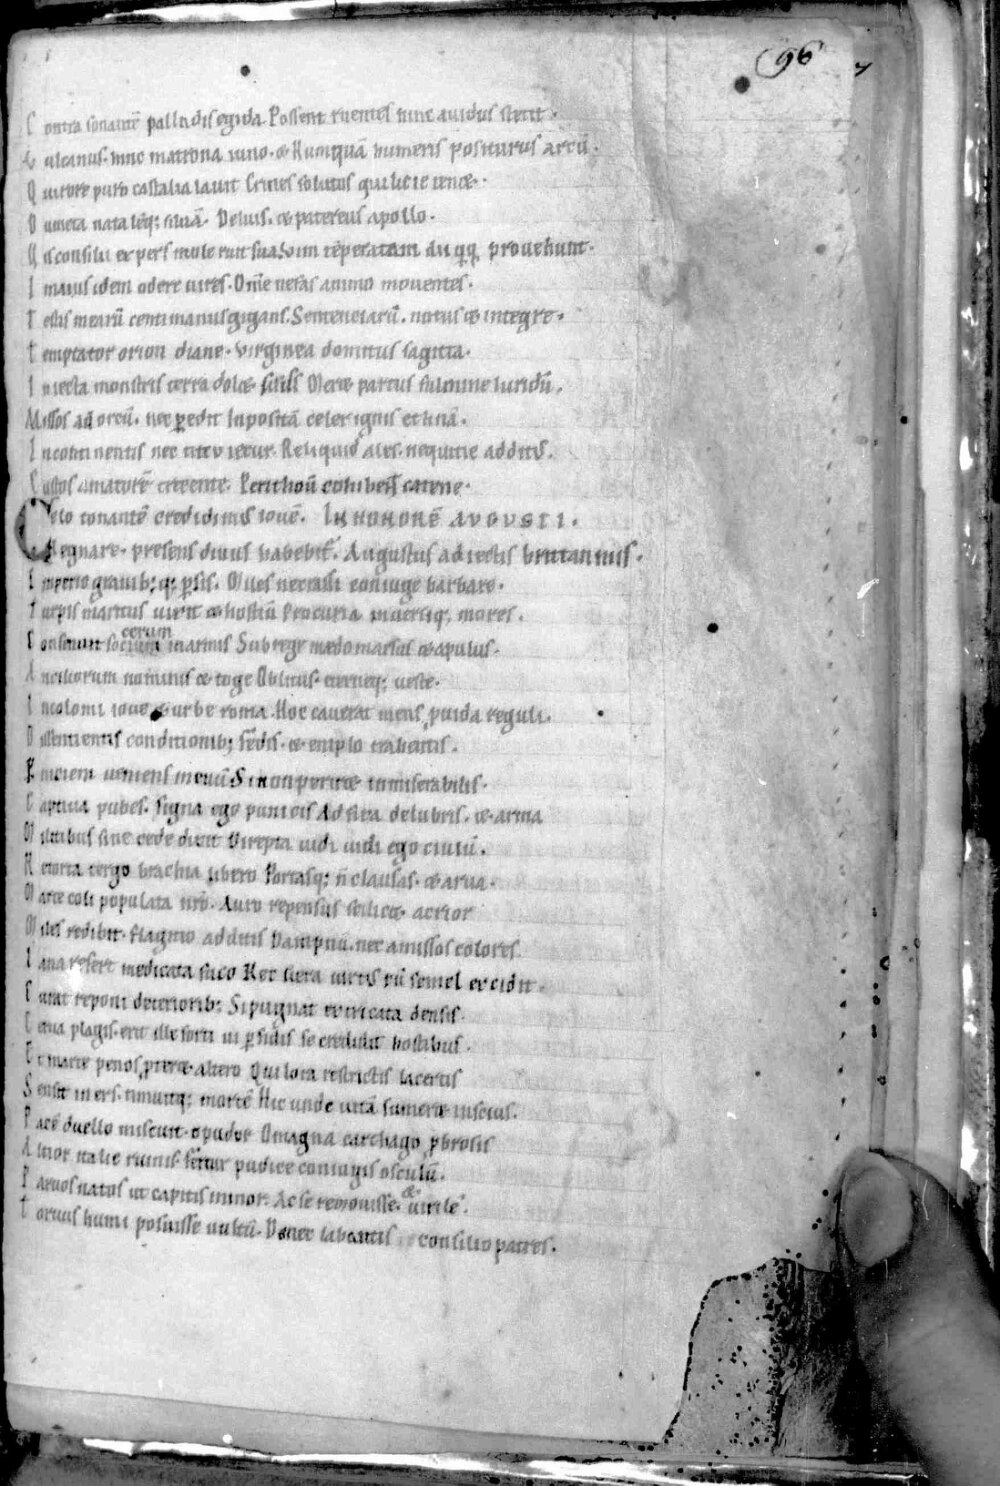 96
C ontra sonantē palladis egida. Possent ruentes hinc avidus stetit.
V ulcanus. hinc matrona iuno. & Nunquā humeris positurus arcū.
Q ui rore puro castalia lavit Crines solutos qui licie tenet.
D umeta natalēq; siluā. Delius. & patereus apollo.
U is consilii expers mole ruit sua. vim tēperatam dii q̨q̨ provehunt.
I n maius idem odere vires. Om̄e nefas animo moventes.
T estis mearū centimanus gigans. Sentenciarū. notus & integre.
T emptator orion diane. virginea domitus sagitta.
I niecta monstris terra dolet. Meret partus fulmine luridū.
Missos ad orcū. nec p̱edit Inpositā celer ignis ethnā.
I ncontinentis nec titii iecur. Reliquid ales. nequitie additus.
C ustos amatorē trecente. Perithoū cohibent catene.
Celo tonantē credidimus iovē. IN HONORĒ AVGVSTI.
Regnare. presens divus habebit̄. Augustus adiectis britannis.
I mperio gravib; q; p̱sis. Miles ne crassi coniuge barbara.
T urpis maritus vixit & hostiū Procuria inversiq; mores.
cerum
C onsenuit socium in armis Sub rege medo marsus & apulus.
A nciliorum nominis & toge Oblitus. eterneq; veste.
I ncolomi iove & urbe roma. Hoc caverat mens p̱vida reguli.
D issentientis conditionib; fēdis. & emplo trahentis.
P niciem veniens in evū Si non periret inmiserabilis.
C aptiva pubes. signa ego punicis Adfixa delubris. & arma
M ilitibus sine cede dixit Direpta vidi vidi ego civiū.
R etorta tergo brachia libero Portasq; ñ clausas. & arva.
M arte coli populata nrō. Auro repensus scilicet acrior
M iles redibit. flagitio additis Dampnū. nec amissos colores.
L ana refert medicata fuco Nec vera virtus cū semel excidit.
C urat reponi deteriorib; Si pugnat extricata densis.
C erva plagis. erit ille fortis qui p̱fidis se credidit hostibus.
E t marte penos p̱teret. altero Qui lora restrictis lacertis
S ensit iners. timuitq; mortē Hic unde vitā sumeret inscius.
P acē duello miscuit. o pudor O magna carthago p̱brosis
A ltior italie ruinis. fertur pudice coniugis osculū.
P arvos natos ut capitis minor. Ac se removisse. & virilē.
T orvus humi posuisse vultū. Donec labantis consilio patres.